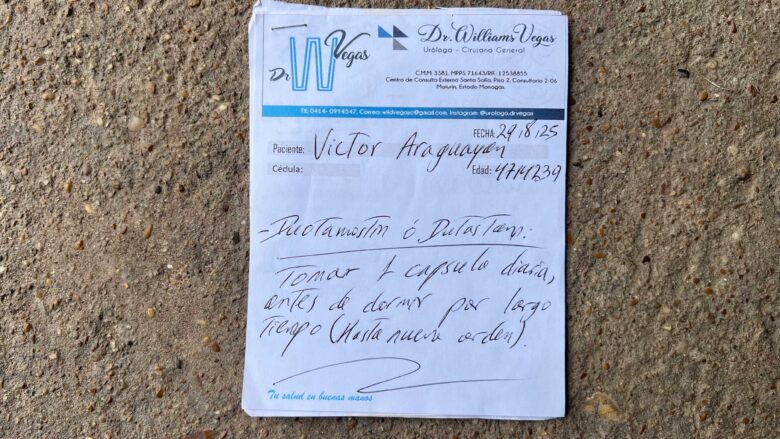 Dr W Vegas
Dr. Williams Vegas
Urólogo - Cirujano General
C.M.M: 3381. MPPS 71643/RIF.: 12538855
Centro de Consulta Externa Santa Sofía, Piso 2, Consultorio 2-06
Maturín, Estado Monagas.
Tlf.: 0414- 0914547. Correo: wildvegasc@gmail.com. Instagram: @urologo.drvegas
FECHA: 29/8/25
Paciente: Victor Araguayan
Cédula: Edad: 4714239
- Duotamostin ó Dutas Tam:
Tomar 1 capsula diaria,
antes de dormir por largo
Tiempo (Hasta nueva orden).
Tu salud en buenas manos